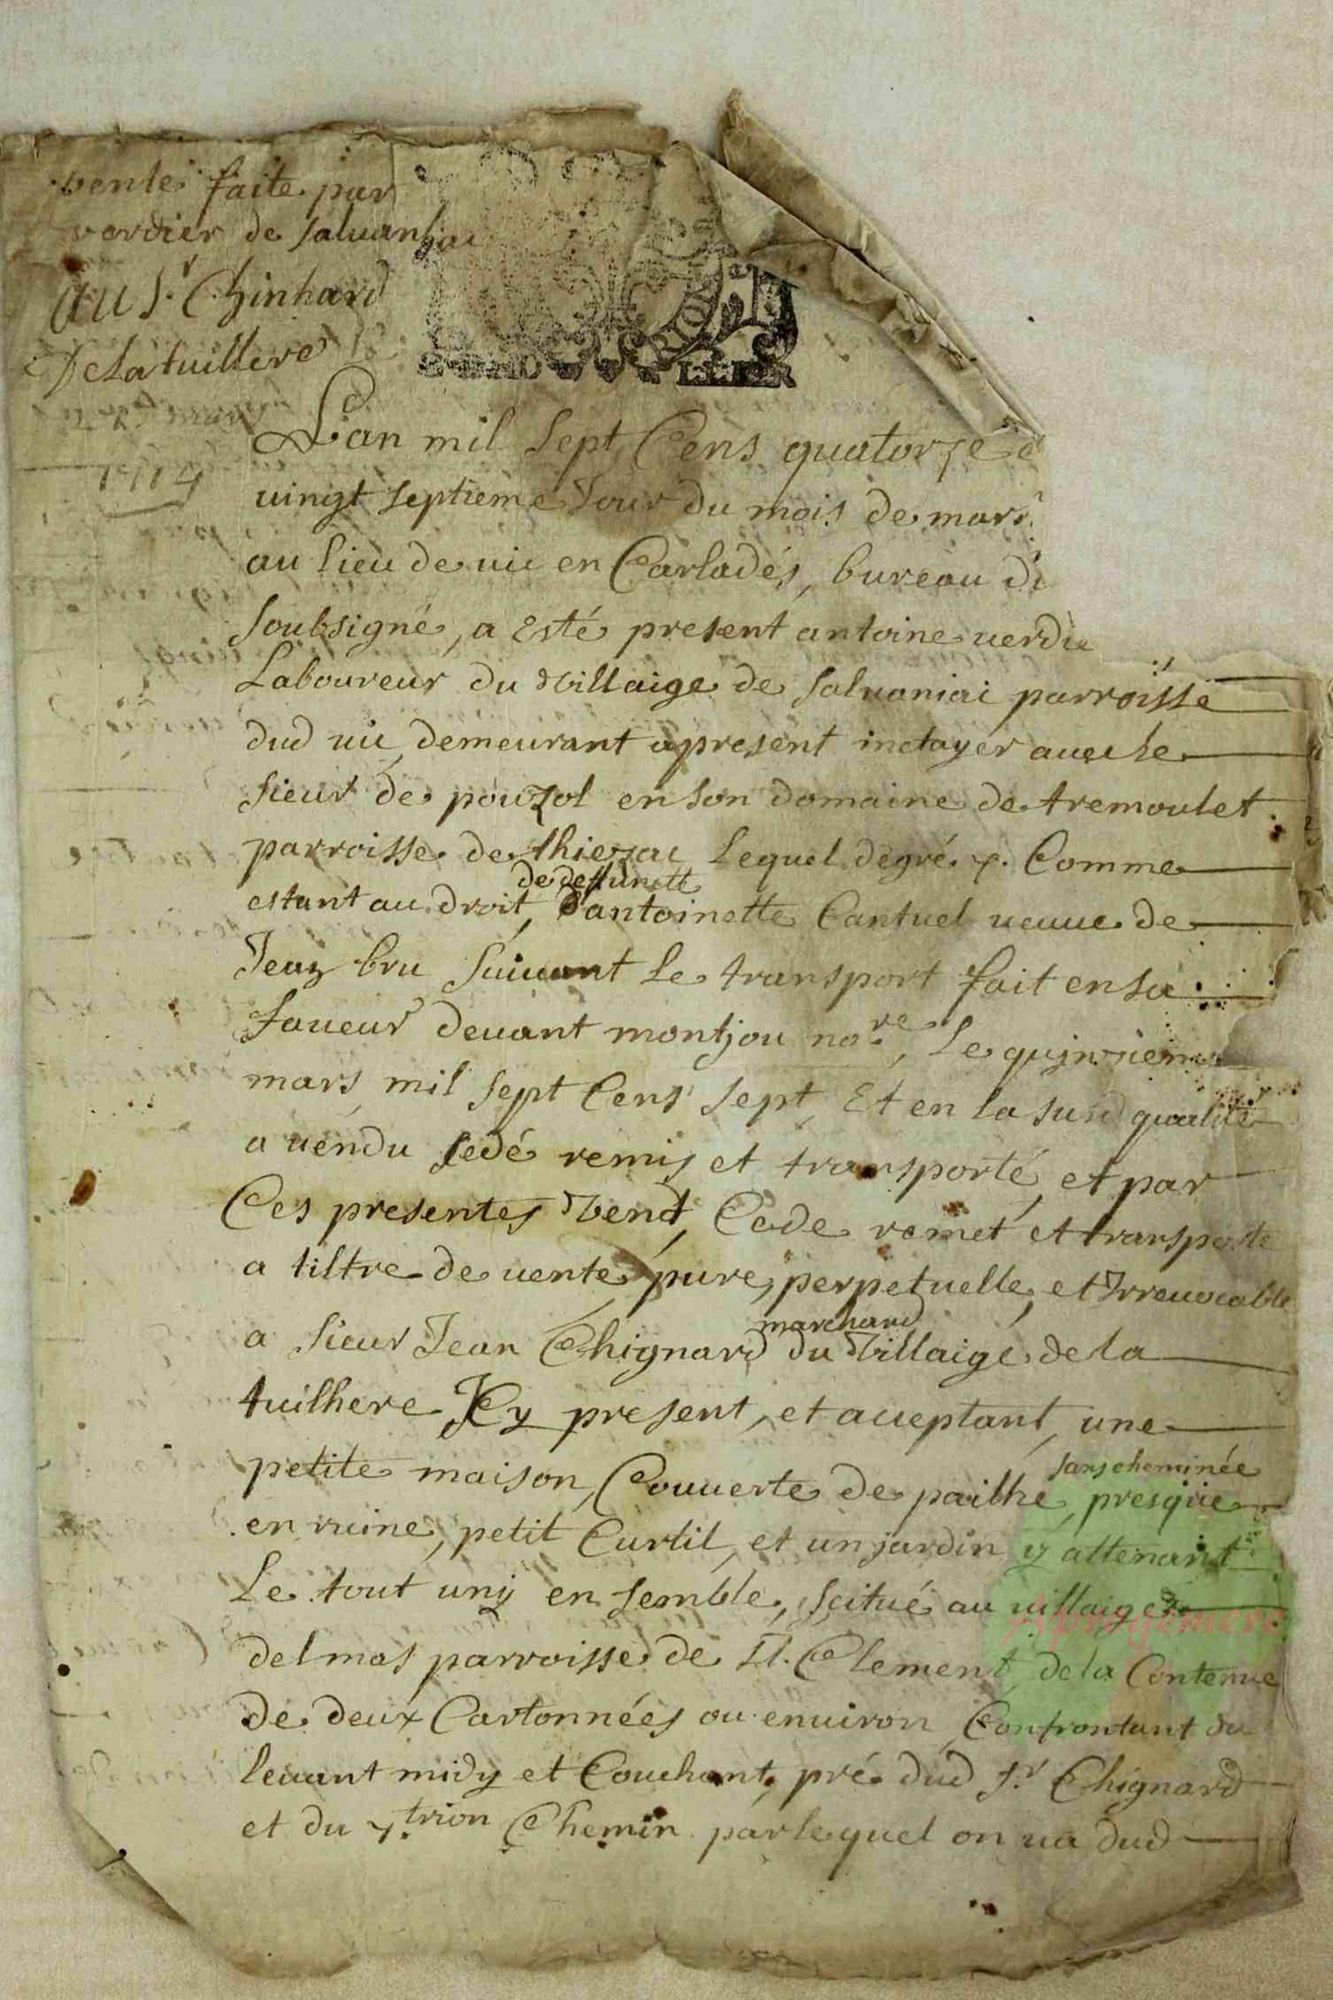 vente faite par
verdier de saluanhac
au Sr. Chinhard
De la tuillere
27e mars
1714
L'an mil sept Cens quatorze
uingt septieme Jour du mois de mars
au lieu de uic en Carladés, bureau
soubsigné, a Esté present antoine uerdie
Laboureur du Villaige de saluaniai parroisse
dud uic demeurant apresent metayer auec le
sieur de pouzol en son domaine de tremoulet
parroisse de thiezac lequel de gré &. Comme
de deffuncte
estant au droit, d'antoinette Cantuel ueuue de
Jean bru suiuant le transport fait en sa
faueur deuant montjou nore, Le quinzieme
mars mil sept Cens sept, Et en la susd qualité
a uendu cedé remis et transporté, et par
Ces presentes Vend, Cede remet et transporte
a tiltre de uente, pure, perpetuelle, et Irreuocable
marchand
a sieur Jean Chignard du Villaige de la
tuilhere Icy present, et acceptant, une
sans cheminée
petite maison, Couuerte de pailhe, presque
en ruine, petit Curtil, et un jardin y attenant
Le tout uny en semble, scitué au uillaige
delmas parroisse de St. Clement, de la Contenue
de deux Cartonnées ou enuiron, Confrontant du
leuant midy et Couchant, pré dud Sr. Chignard
et du 7.trion Chemin par lequel on ua dud
Aprogemere